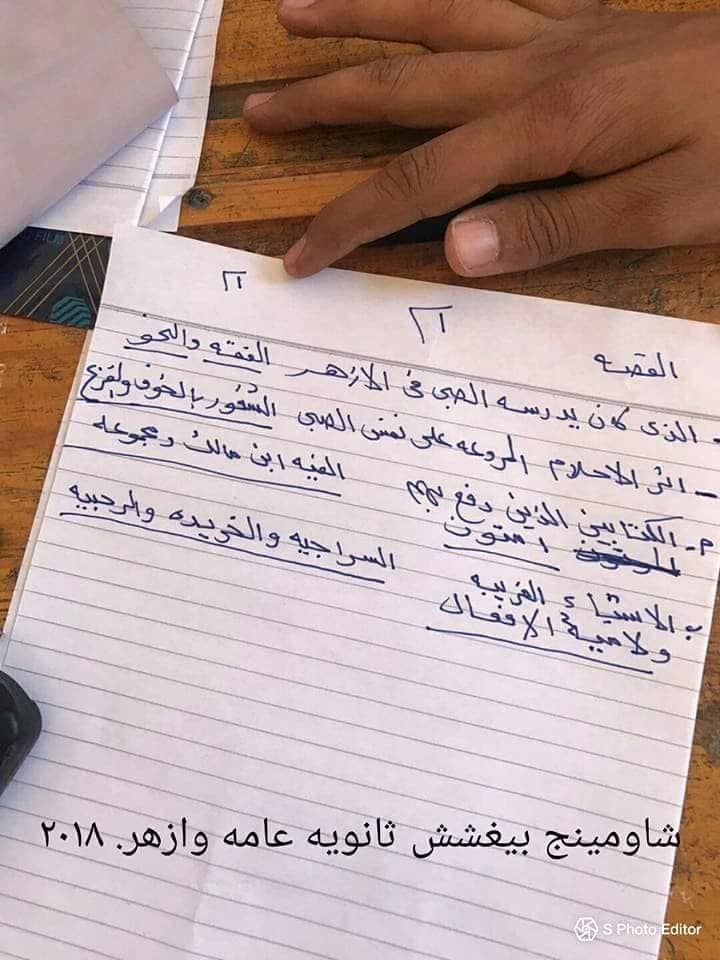 FILM
٢١
٢١
القصه
- الذى كان يدرسه الصبى فى الازهر الفقه والنحو
- اثر الاحلام المروعه على نفس الصبى الشعور بالخوف والفزع
م- الكتابين الذين دفع بهم الفيه ابن مالك ومجموعه
المتون
ب الاشياء الغريبه السراجيه والخريده والرحبيه
ولاميه الافعال
شاومينج بيغشش ثانويه عامه وازهر. ٢٠١٨
S Photo Editor